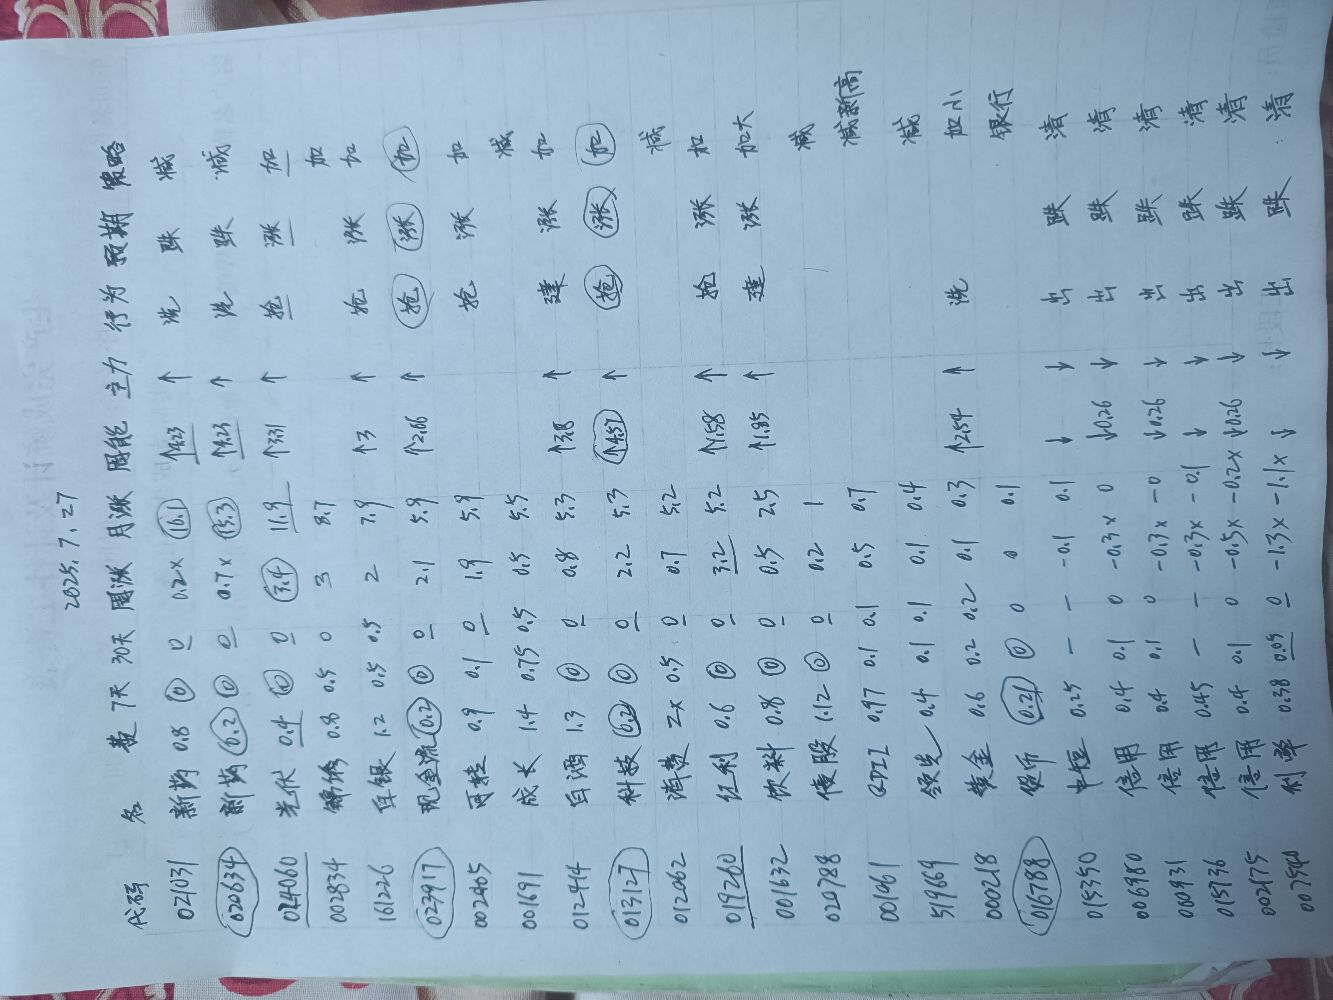 2025.7.27
代码 名 费 7天 30天 周涨 月涨 周能 主力 行为 预期 策略
021031 新药 0.8 0 0 0.2x 16.1 ↑4.23 ↑ 洗 跌 减
020634 新药 0.2 0 0 0.7x 15.3 ↑4.23 ↑ 洗 跌 减
024060 光伏 0.4 0 0 3.4 11.9 ↑3.31 ↑ 抢 涨 加
002834 0.8 0.5 0 3 8.7 加
161226 白银 1.2 0.5 0.5 2 7.9 ↑3 ↑ 抢 涨 加
023917 现金流 0.2 0 0 2.1 5.9 ↑2.66 ↑ 抢 涨 加
002465 0.9 0.1 0 1.9 5.9 抢 涨 加
001691 成长 1.4 0.75 0.5 0.5 5.5 减
012414 白酒 1.3 0 0 0.8 5.3 ↑3.8 ↑ 建 涨 加
013127 科技 0.2 0 0 2.2 5.3 ↑4.57 ↑ 抢 涨 加
012062 消费 2x 0.5 0 0.7 5.2 减
019260 红利 0.6 0 0 3.2 5.2 ↑1.58 ↑ 抢 涨 加
001632 饮料 0.8 0 0 0.5 2.5 ↑1.85 ↑ 建 涨 加大
020788 债股 1.12 0 0 0.2 1 减
001061 QDII 0.97 0.1 0.1 0.5 0.7 减新高
519669 领先 0.4 0.1 0.1 0.1 0.4 减
000218 黄金 0.6 0.2 0.2 0.1 0.3 ↑2.54 ↑ 洗 加小
016788 货币 0.21 0 0 0 0.1 银行
015350 中短 0.25 - - -0.1 0.1 ↓ ↓ 出 跌 清
006980 信用 0.4 0.1 0 -0.3x 0 ↓0.26 ↓ 出 跌 清
信用 0.4 0.1 0 -0.3x -0 ↓0.26 ↓ 出 跌 清
015736 信用 0.45 - - -0.3x -0.1 ↓ ↓ 出 跌 清
002175 信用 0.4 0.1 0 -0.5x -0.2x ↓0.26 ↓ 出 跌 清
007540 利率 0.38 0.05 0 -1.3x -1.1x ↓ ↓ 出 跌 清